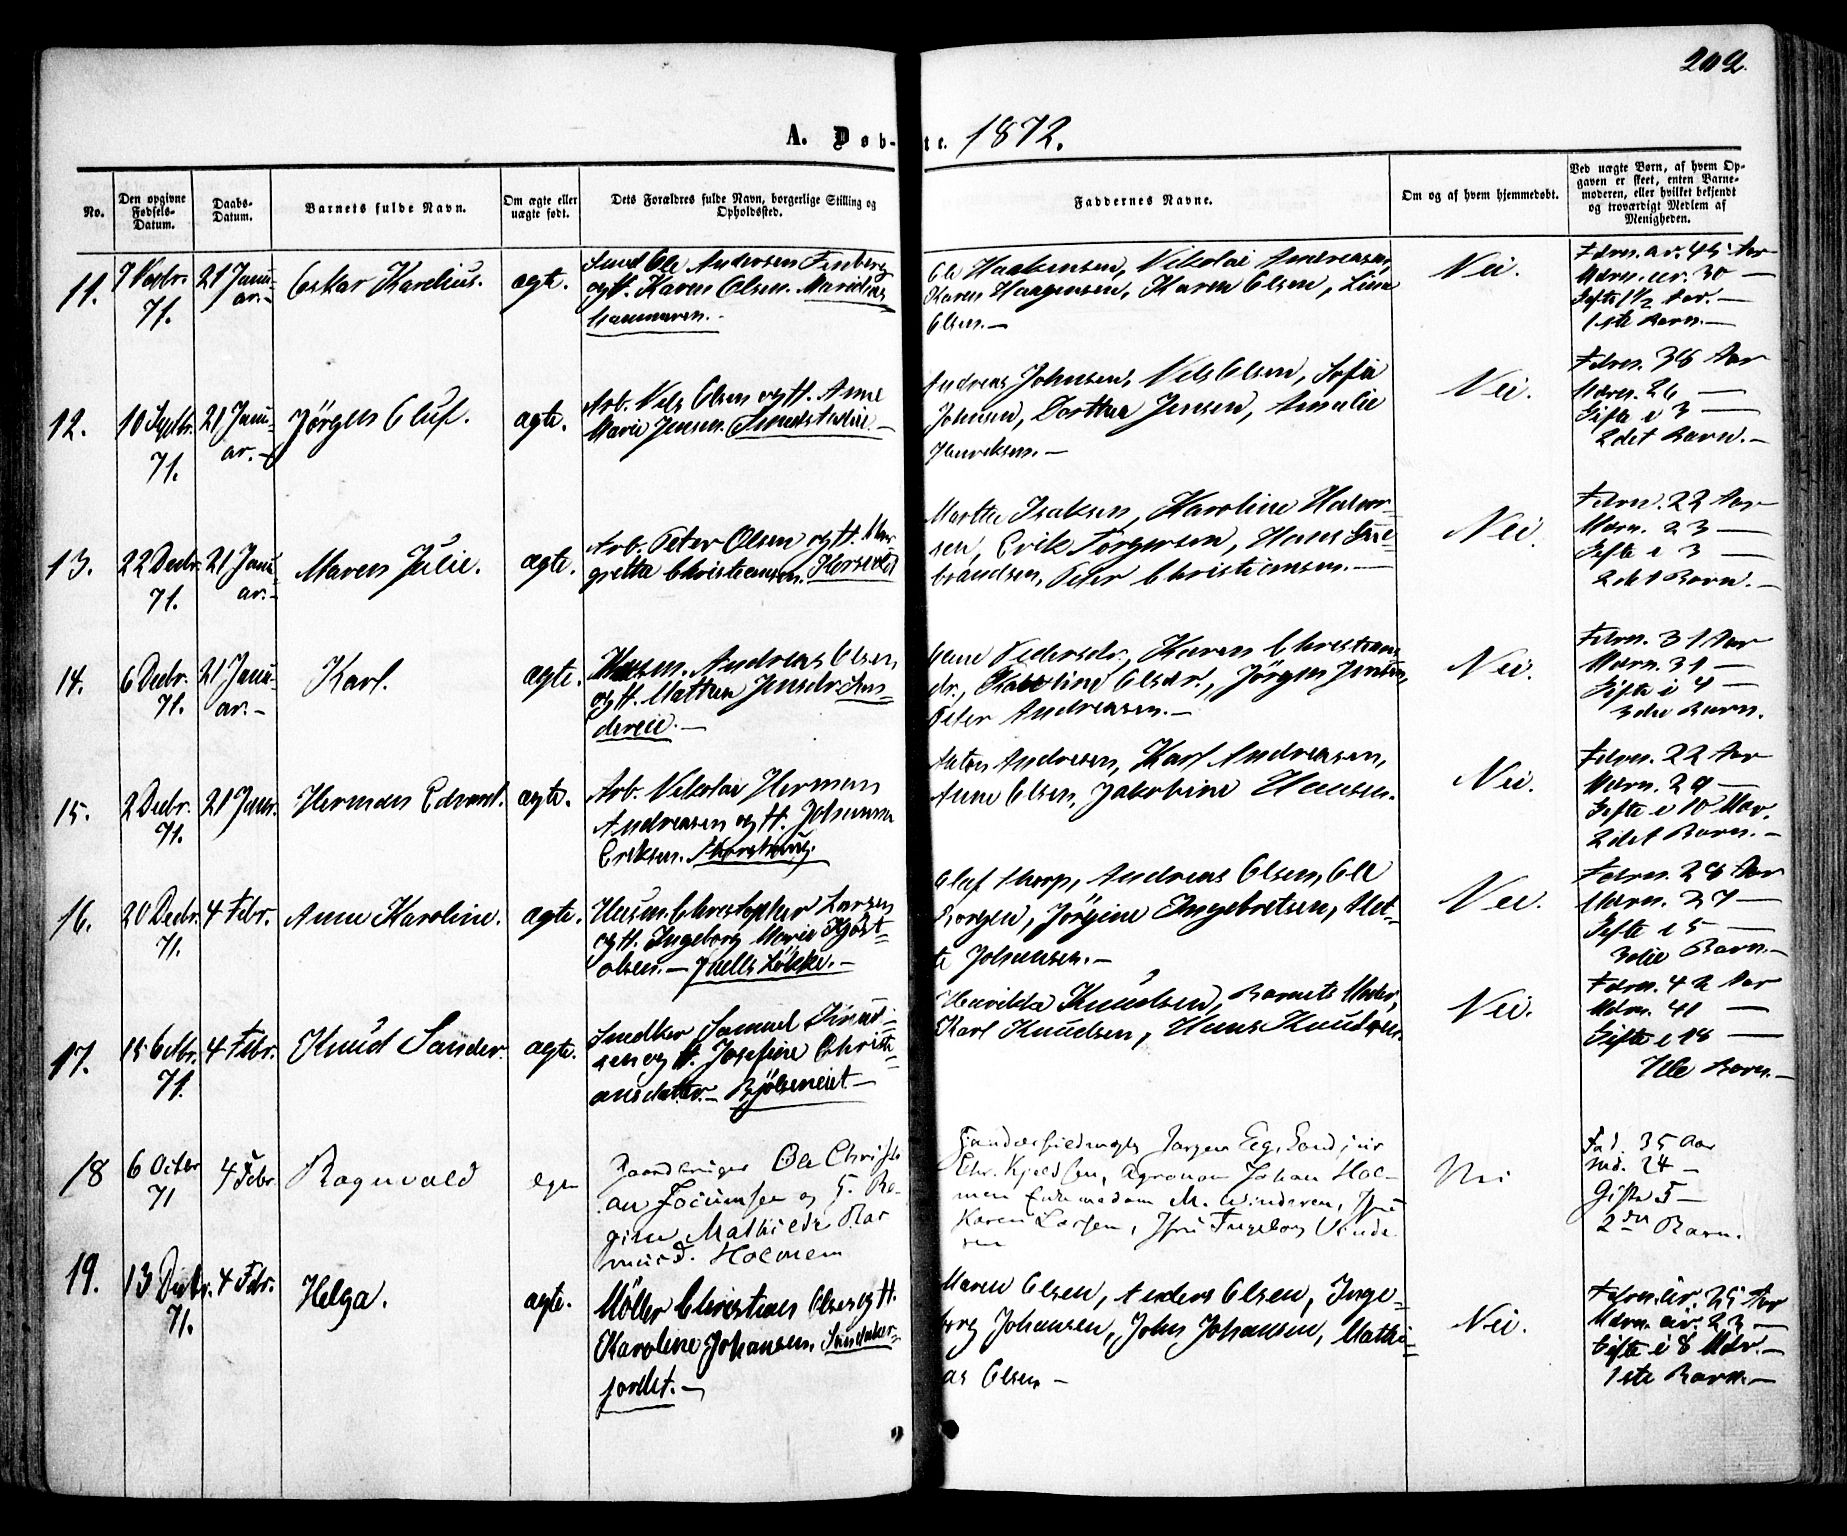 202.
A. Døb-te. 1872.
No.
Den opgivne Fødsels-Datum.
Daabs-Datum.
Barnets fulde Navn.
Om ægte eller uægte født.
Dets Forældres fulde Navn, borgerlige Stilling og Opholdssted.
Faddernes Navne.
Om og af hvem hjemmedøbt.
Ved uægte Børn, af hvem Opgaven er skeet, enten Barnemoderen, eller hvilket bekjendt og troværdigt Medlem af Menigheden.
11.
7 Novbr.
71.
21 Janu-
ar.-
Oskar Karelius.
ægte.
Smed Ole Andersen
og H. Karen Olsen.
Ole Haakensen, Nikolai Andreasen,
Karen Haagensen, Karen Olsen, Lina
Olsen.-
Nei.
Fdrn. ær. 45 Aar
Mdrn. ær. 30 -
Gifte 1 1/2 Aar. -
1ste Barn. -
12.
10 Septbr.
71.
21 Janu-
ar.-
Jörgen Oluf.
ægte.
Arb. Nils Olsen og H. Anne
Marie Jensen.
Andreas Johnsen, Nils Olsen, Sofie
Johnsen, Dorthea Jensen, Amalie
Henriksen.-
Nei.
Fdrn. 38 Aar
Mdrn. 26 -
Gifte i 3 -
2det Barn. -
13.
22 Decbr.
71.
21 Janu-
ar.-
Maren Julie.
ægte.
Arb. Peter Olsen og H. Mar-
grethe Christiansen.
Marthe Isaksen, Karoline Halvor-
sen, Erik Torgersen, Hans
brandsen, Peter Christiansen.-
Nei.
Fdrn. 22 Aar
Mdrn. 23 -
Gifte i 3 -
2det Barn. -
14.
6 Decbr.
71.
21 Janu-
ar.-
Karl.
ægte.
Husm. Andreas Olsen
og H. Mathea Jensdr.
dereie.-
Pedersdr., Karen Christians-
dr., Karoline Olsdr., Jörgen Jensen,
Peter Andreasen.-
Nei.
Fdrn. 31 Aar
Mdrn. 31 -
Gifte i 4 -
3die Barn.
15.
2 Decbr.
71.
21 Janr.
Herman Edvard.
ægte.
Arb. Nikolai Herman
Andreasen og H. Johanna
Eriksen.
Anton Andresen, Karl Andreasen,
Anne Olsen, Jakobine Hansen.
Nei.
Fdrn. 22 Aar
Mdrn. 29 -
Gifte i 10 Mdr.
2det Barn. -
16.
20 Decbr.
71.
4 Febr.
Anne Karoline.
ægte.
Husm. Christopher Larsen
og H. Ingeborg Marie Kjöst-
olsen.- Juells Lökke.-
Olaf Thorp, Andreas Olsen, Ole
Borgen, Jörgine Ingebretsen, Met-
te Johansen.-
Nei.
Fdrn. 28 Aar
Mdrn. 27 -
Gifte i 5 -
3die Barn. -
17.
15 Octbr.
71.
4 Febr.
Knud Sander.
ægte.
Snedker Samuel Knud-
sen og H. Josefine Christi-
ansdatter.- Bjölseneiet-
Henrikka Knudsen, Barnets Moder,
Karl Knudsen, Hans Knudsen.
Nei.
Fdrn. 42 Aar
Mdrn. 41 -
Gifte i 18 -
7de Barn. -
18
6 Octbr
71
4 Febr
Ragnvald
egte
Gaardbruger Ole Christi
an Jocumsen og H. Re
gine Mathilde Ras
musd. Holmen
Jørgen Eeg, Sand,
Chr. Kjeldsen, Agronom Johan Hol-
men M. Winderen,
Karen Larsen, Ingeborg Vinde
ren
Nei
Fad. 35 Aar
Md. 24 -
Gifte 5 -
2det Barn.
19.
13 Decbr.
71.
4 Febr.
Helga.
ægte.
Möller Christian Olsen og H.
Karoline Johansen. Sandaker-
jordet.-
Maren Olsen, Anders Olsen, Inge-
borg Johansen, John Johansen, Mathi-
as Olsen -
Nei.
Fdrn. ær. 25 Aar
Mdrn. ær. 23 -
Gifte i 8 Mdr. -
1ste Barn. -